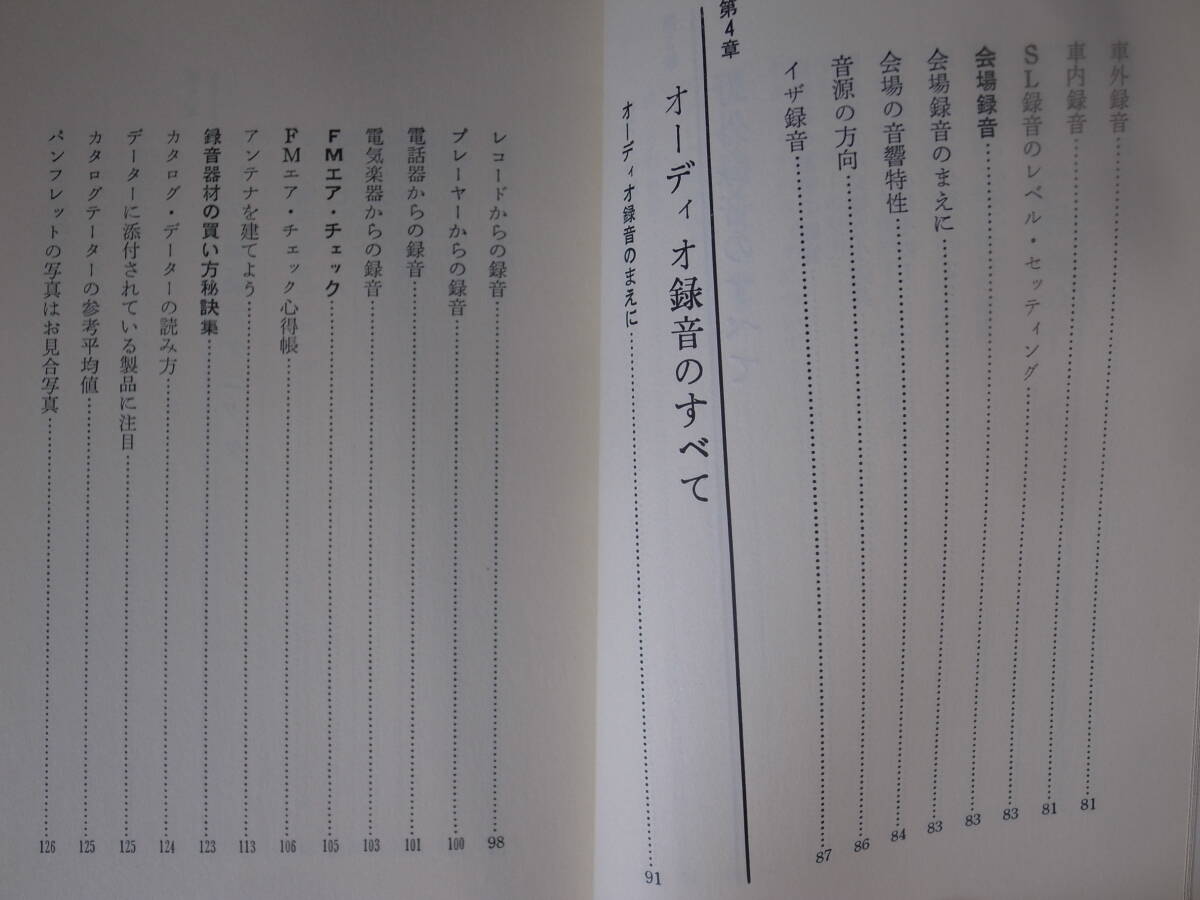 車外録音…………81
車内録音…………81
SL録音のレベル・セッティング…………83
会場録音…………83
会場録音のまえに…………83
会場の音響特性…………84
音源の方向…………86
イザ録音…………87
第4章
オーディオ録音のすべて
オーディオ録音のまえに…………91
レコードからの録音…………98
プレーヤーからの録音…………100
電話器からの録音…………101
電気楽器からの録音…………103
FMエア・チェック…………105
FMエア・チェック心得帳…………106
アンテナを建てよう…………113
録音器材の買い方秘訣集…………123
カタログ・データーの読み方…………124
データーに添付されている製品に注目…………125
カタログデーターの参考平均値…………125
パンフレットの写真はお見合写真…………126